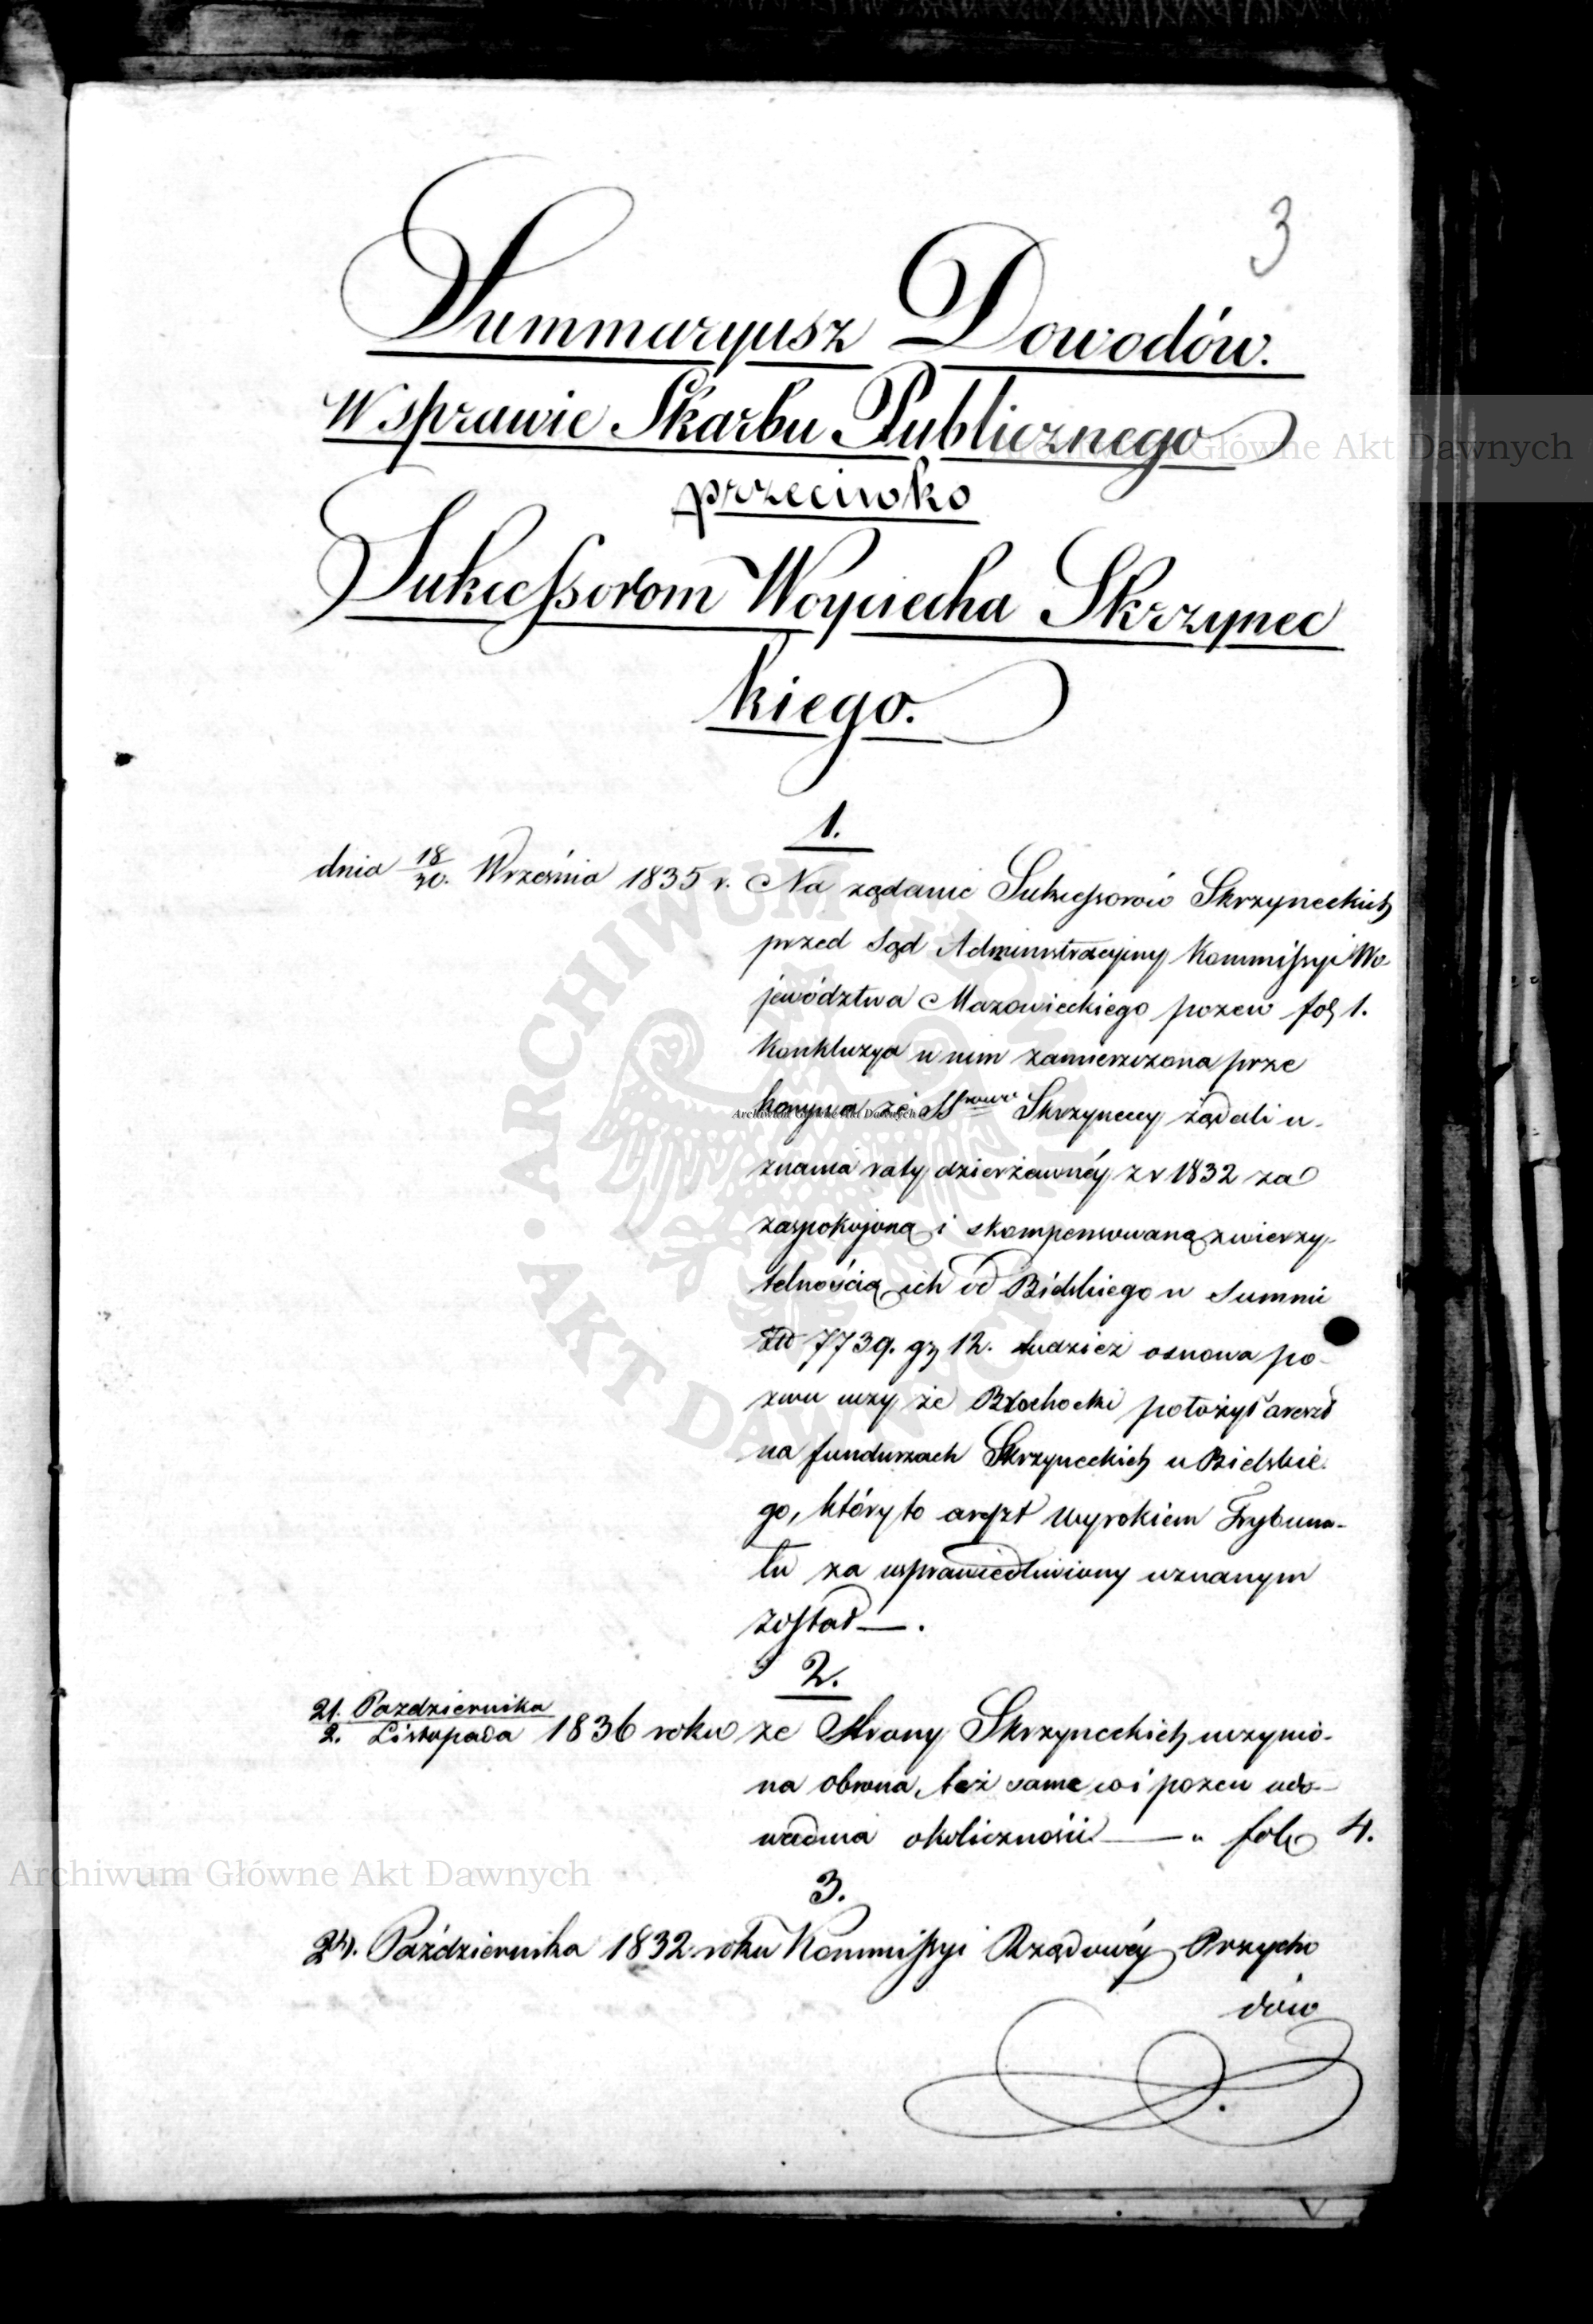 3
Summaryusz Dowodów.
W sprawie Skarbu Publicznego
przeciwko
Sukcessorom Woyciecha Skrzynec
kiego.
1.
dnia 18/30. Września 1835 r. Na żądanie Sukcessorów Skrzyneckich
przed Sąd Administracyjny Kommissyi Wo-
jewództwa Mazowieckiego pozew fol 1.
Konkluzya w nim zamierzona prze
konywa że Skrzyneccy żądali u-
znania raty dzierżawnéy z r 1832 za
zaspokojoną i skompensowaną z wierzy-
telnością ich od Bielskiego w Summie
Złp 7739. gr 12. tudzież osnowa po-
zwu uczy że Brochocki położył areszt
na funduszach Skrzyneckich u Bielskie-
go, który to areszt wyrokiem Trybuna-
łu za usprawiedliwiony uznanym
został —.
2.
21. Pazdziernika
2. Listopada 1836 roku ze Strony Skrzyneckich uczynio-
na obrona, też same co i pozew udo-
wadnia okoliczności — " fol 4.
3.
24. Października 1832 roku Kommissyi Rządowéy Przycho
dów
Archiwum Główne Akt Dawnych
Archiwum Główne Akt Dawnych
Archiwum Główne Akt Dawnych